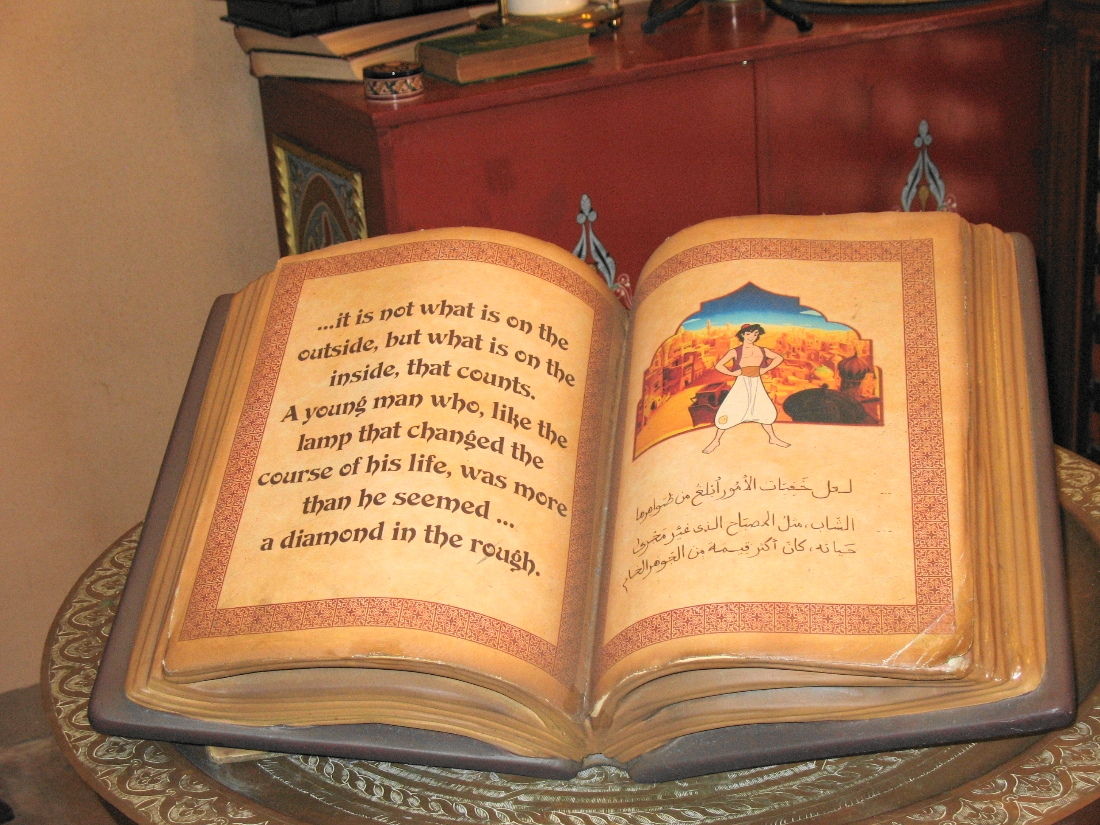 ...it is not what is on the
outside, but what is on the
inside, that counts.
A young man who, like the
lamp that changed the
course of his life, was more
than he seemed ...
a diamond in the rough.
... لعل خفيات الأمور أبلغ من ظواهرها
... الشاب، مثل المصباح الذي غير مجرى
حياته، كان أكثر قيمة من الجوهر الخام